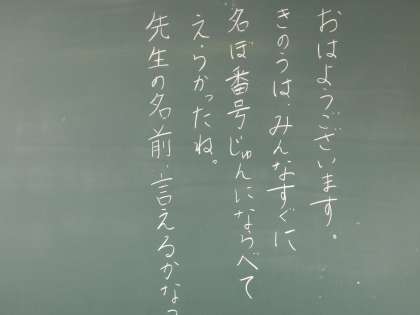 おはようございます。
きのうは、みんなすぐに
名ぼ番号じゅんにならべて
えらかったね。
先生の名前、言えるかな？